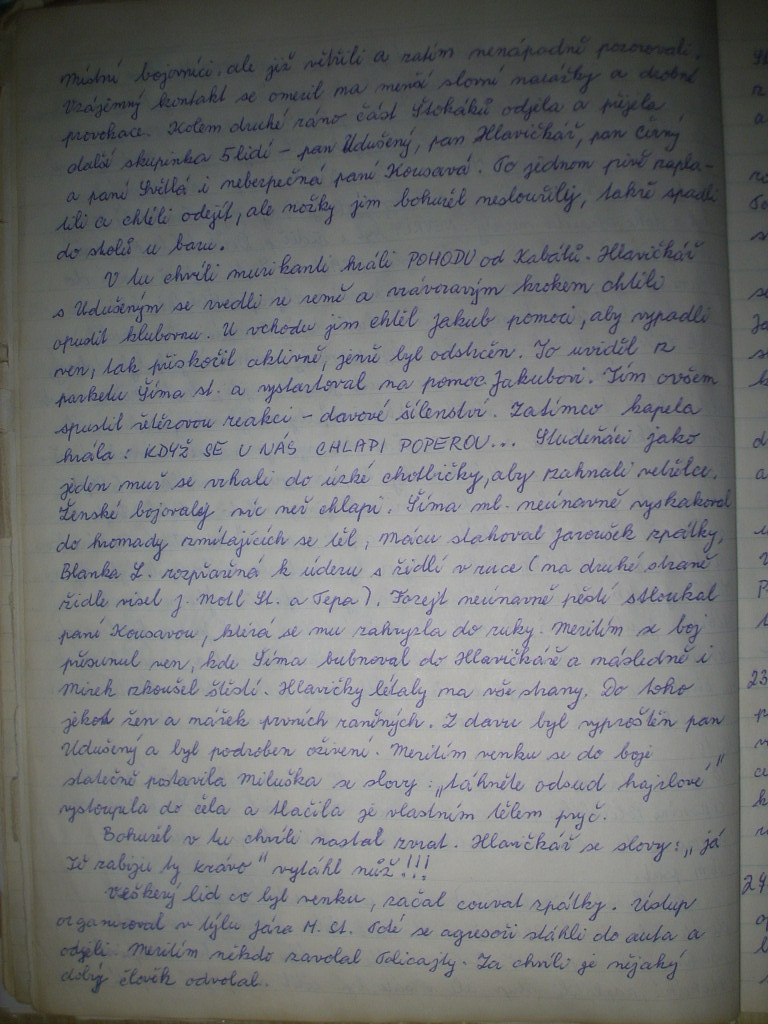 místní bojovníci, ale již větřili a zatím nenápadně pozorovali.
Vzájemný kontakt se omezil na menší slovní narážky a drobné
provokace. Kolem druhé ráno část Štokáků odjela a přijela
další skupinka 5 lidí – pan Udušený, pan Hlavičkář, pan Černý
a paní Světlá i nebezpečná paní Kousavá. Po jednom pivě zapla-
tili a chtěli odejít, ale nožky jim bohužel nesloužily, takže spadli
do stolů u baru.
V tu chvíli muzikanti hráli POHODU od Kabátů. Hlavičkář
s Udušeným se zvedli ze země a vrávoravým krokem chtěli
opustit klubovnu. U vchodu jim chtěl Jakub pomoci, aby vypadli
ven, tak přiskočil aktivně, jenže byl odstrčen. To uviděl z
parketu Šíma st. a vystartoval na pomoc Jakubovi. Tím ovšem
spustil řetězovou reakci – davové šílenství. Zatímco kapela
hrála: KDYŽ SE U NÁS CHLAPI POPEROU... Studeňáci jako
jeden muž se vrhali do úzké chodbičky, aby zahnali vetřelce.
Ženské bojovaly víc než chlapi. Šíma ml. neúnavně vyskakoval
do hromady zmítajících se těl, Mácu stahoval Jaroušek zpátky,
Blanka Z. rozpřažená k úderu s židlí v ruce (na druhé straně
židle visel J. Motl St. a Pepa). Forejt neúnavně pěstí stloukal
paní Kousavou, která se mu zahryzla do ruky. Mezitím se boj
přesunul ven, kde Šíma bubnoval do Hlavičkáře a následně i
Mirek zkoušel štěstí. Hlavičky létaly na vše strany. Do toho
jekot žen a nářek prvních raněných. Z davu byl vyproštěn pan
Udušený a byl podroben oživení. Mezitím venku se do boje
statečně postavila Miluška se slovy: „táhněte odsud hajzlové"
vystoupila do čela a tlačila je vlastním tělem pryč.
Bohužel v tu chvíli nastal zvrat. Hlavičkář se slovy: „já
Tě zabiju ty krávo" vytáhl nůž!!!
Veškerý lid co byl venku, začal couvat zpátky. Ústup
organizoval v týlu Jára M. St. Poté se agresoři stáhli do auta a
odjeli. Mezitím někdo zavolal Policajty. Za chvíli je nějaký
dobrý člověk odvolal.